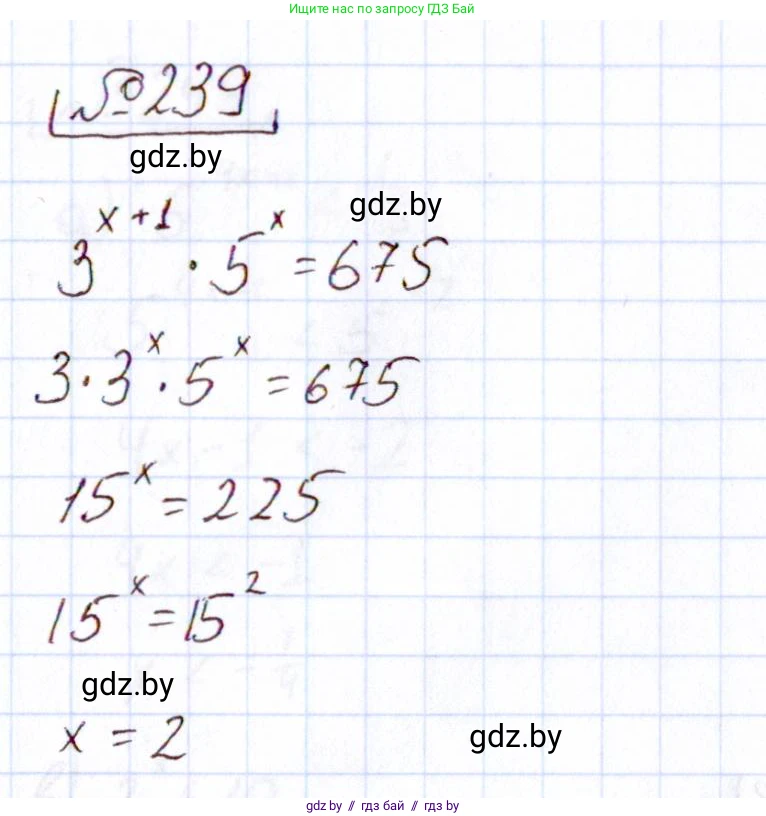 Ищите нас по запросу ГДЗ Бай
№239
gdz.by
gdz.by
3^{x+1} · 5^x = 675
3 · 3^x · 5^x = 675
15^x = 225
15^x = 15^2
gdz.by
x = 2
gdz.by
gdz.by // гдз бай // гдз by